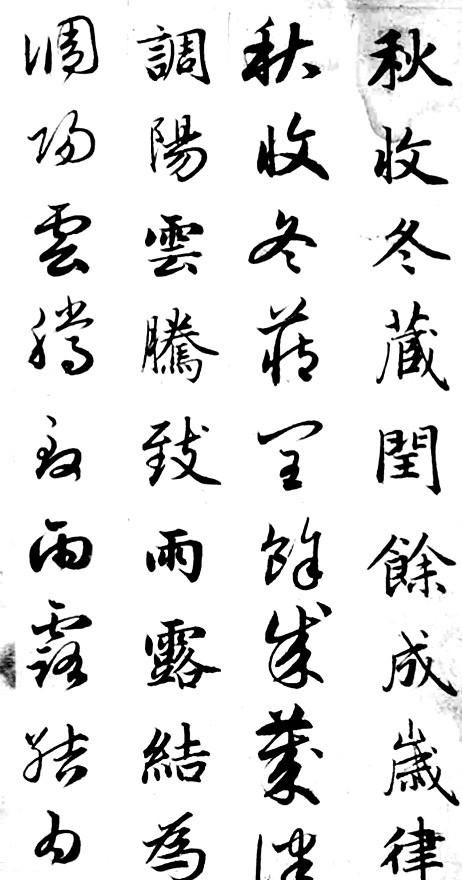 秋收冬藏閏餘成歲律
秋收冬藏閏餘成歲律
調陽雲騰致雨露結為
調陽雲騰致雨露結為